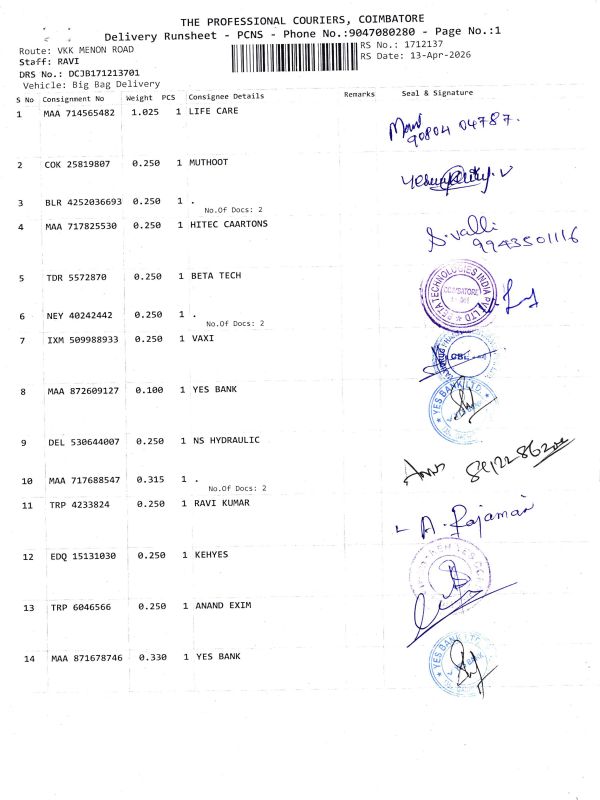 THE PROFESSIONAL COURIERS, COIMBATORE
Delivery Runsheet - PCNS - Phone No.:9047080280 - Page No.:1
Route: VKK MENON ROAD
RS No.: 1712137
Staff: RAVI
RS Date: 13-Apr-2026
DRS No.: DCJB171213701
Vehicle: Big Bag Delivery
S No Consignment No Weight PCS Consignee Details Remarks Seal & Signature
1 MAA 714565482 1.025 1 LIFE CARE
90804 04787.
2 COK 25819807 0.250 1 MUTHOOT
3 BLR 4252036693 0.250 1 .
No.Of Docs: 2
4 MAA 717825530 0.250 1 HITEC CAARTONS
S.valli
9943501116
5 TDR 5572870 0.250 1 BETA TECH
BETA TECHNOLOGIES INDIA PVT LTD
COIMBATORE
6 NEY 40242442 0.250 1 .
No.Of Docs: 2
7 IXM 509988933 0.250 1 VAXI
8 MAA 872609127 0.100 1 YES BANK
YES BANK LTD.
9 DEL 530644007 0.250 1 NS HYDRAULIC
10 MAA 717688547 0.315 1 .
No.Of Docs: 2
11 TRP 4233824 0.250 1 RAVI KUMAR
A. Rajamani
12 EDQ 15131030 0.250 1 KEHYES
13 TRP 6046566 0.250 1 ANAND EXIM
14 MAA 871678746 0.330 1 YES BANK
YES BANK LTD